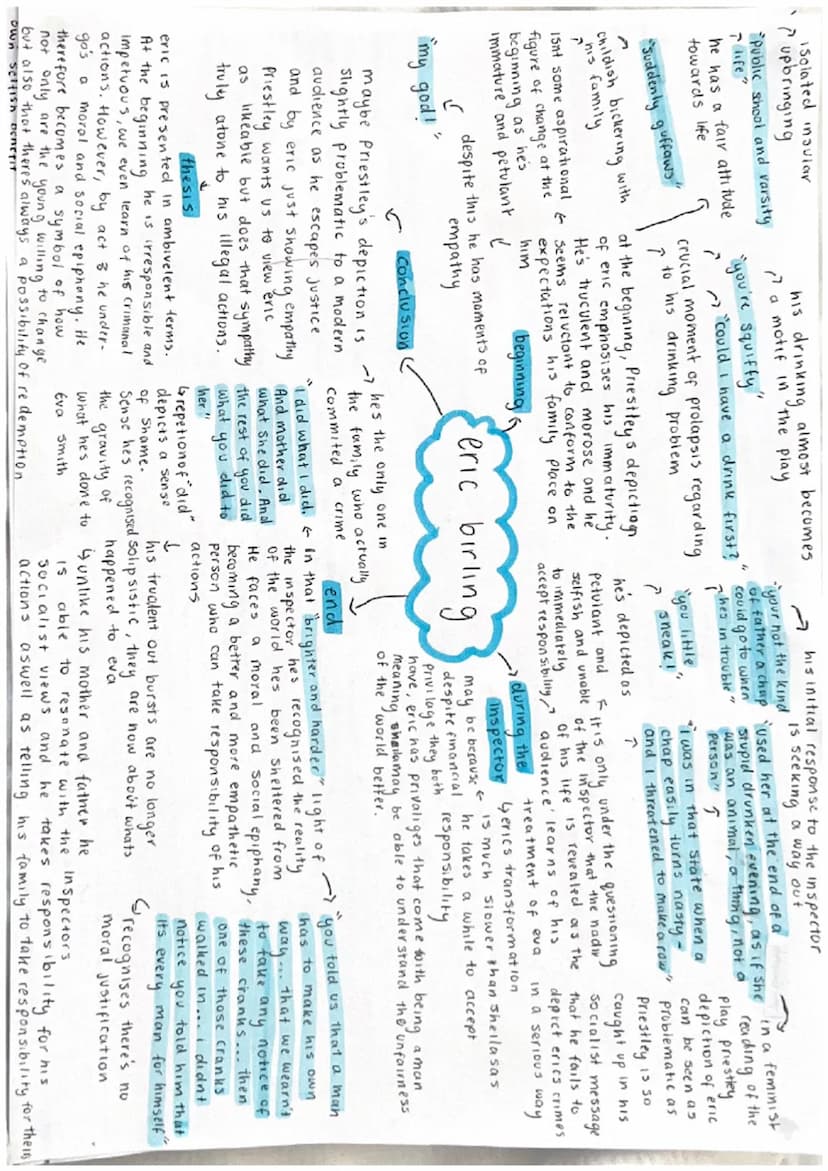 isolated insular
upbringing
"public shool and varsity
life"
he has a fair attitude
towards life
"suddenly guffaws"
childish bickering with
his family
isnt some aspirational
figure of change at the
beginning as he's
immature and petulant
despite this he has moments of
empathy
"my god!"
his drinking almost becomes
a motif in the play
"you're squiffy"
"could I have a drink first?"
crucial moment of prolapsis regarding
to his drinking problem
at the begining, Priestley's depiction
of eric emphosises his immaturity.
He's truculent and morose and he
seems reluctant to conform to the
expectations his family place on
him
beginning
eric birling
his initial response to the inspector
is seeking a way out
"your not the kind
of father a chap
could go to when
hes in trouble"
"you little
sneak!"
he's depicted as
petulant and
selfish and unable
to immediately
accept responsibility
"used her at the end of a
stupid drunken evening, as if she
was an animal, a thing, not a
person"
"I was in that state when a
chap easily turns nasty-
and I threatened to make a row"
it is only under the questioning
of the inspector that the nadir
of his life is revealed as the
audience learns of his
treatment of eva
in a feminist
reading of the
play priestley
depiction of eric
can be seen as
problematic as
Priestley is so
caught up in his
socialist message
that he fails to
depict erics crimes
in a serious way
during the
inspector
erics transformation
is much slower than sheilas as
he takes a while to accept
responsibility
may be because
despite financial
privilage they both
have, eric has privaliges that come with being a man
meaning sheila may be able to understand the unfairness
of the world better.
conclusion
maybe Priestley's depiction is
slightly problematic to a modern
audience as he escapes justice
and by eric just showing empathy
Priestley wants us to view eric
as likeable but does that sympathy
truly atone to his illegal actions.
thesis
eric is presented in ambivelent terms.
At the beginning he is irresponsible and
impetuous, we even learn of his crimanal
actions. However, by act 3 he under-
go's a moral and social epiphony. He
therefore becomes a symbol of how
not only are the young willing to change
but also that there's always a possibility of redemption
end
he's the only one in
the family who actually
commited a crime
"I did what I did.
And mother did
what she did. And
the rest of you did
what you did to
her"
repetion of "did"
depicts a sense
of shame.
Sense hes recognised
the gravity of
what he's done to
Eva Smith
In that "brighter and harder" light of
the inspector he's recognised the reality
of the world hes been sheltered from
He faces a moral and social epiphany,
becoming a better and more empathetic
person who can take responsibility of his
actions
his truculent out bursts are no longer
solipsistic, they are now about whats
happened to eva
unlike his mother and father he
is able to resonate with the inspectors
socialist views and he takes responsibility for his
actions aswell as telling his family to take responsibility for their
own selfish benefit
"you told us that a man
has to make his own
way... that we wearn't
to take any notice of
these cranks... then
one of those cranks
walked in... I didnt
notice you told him that
its every man for himself"
recognises there's no
moral justification